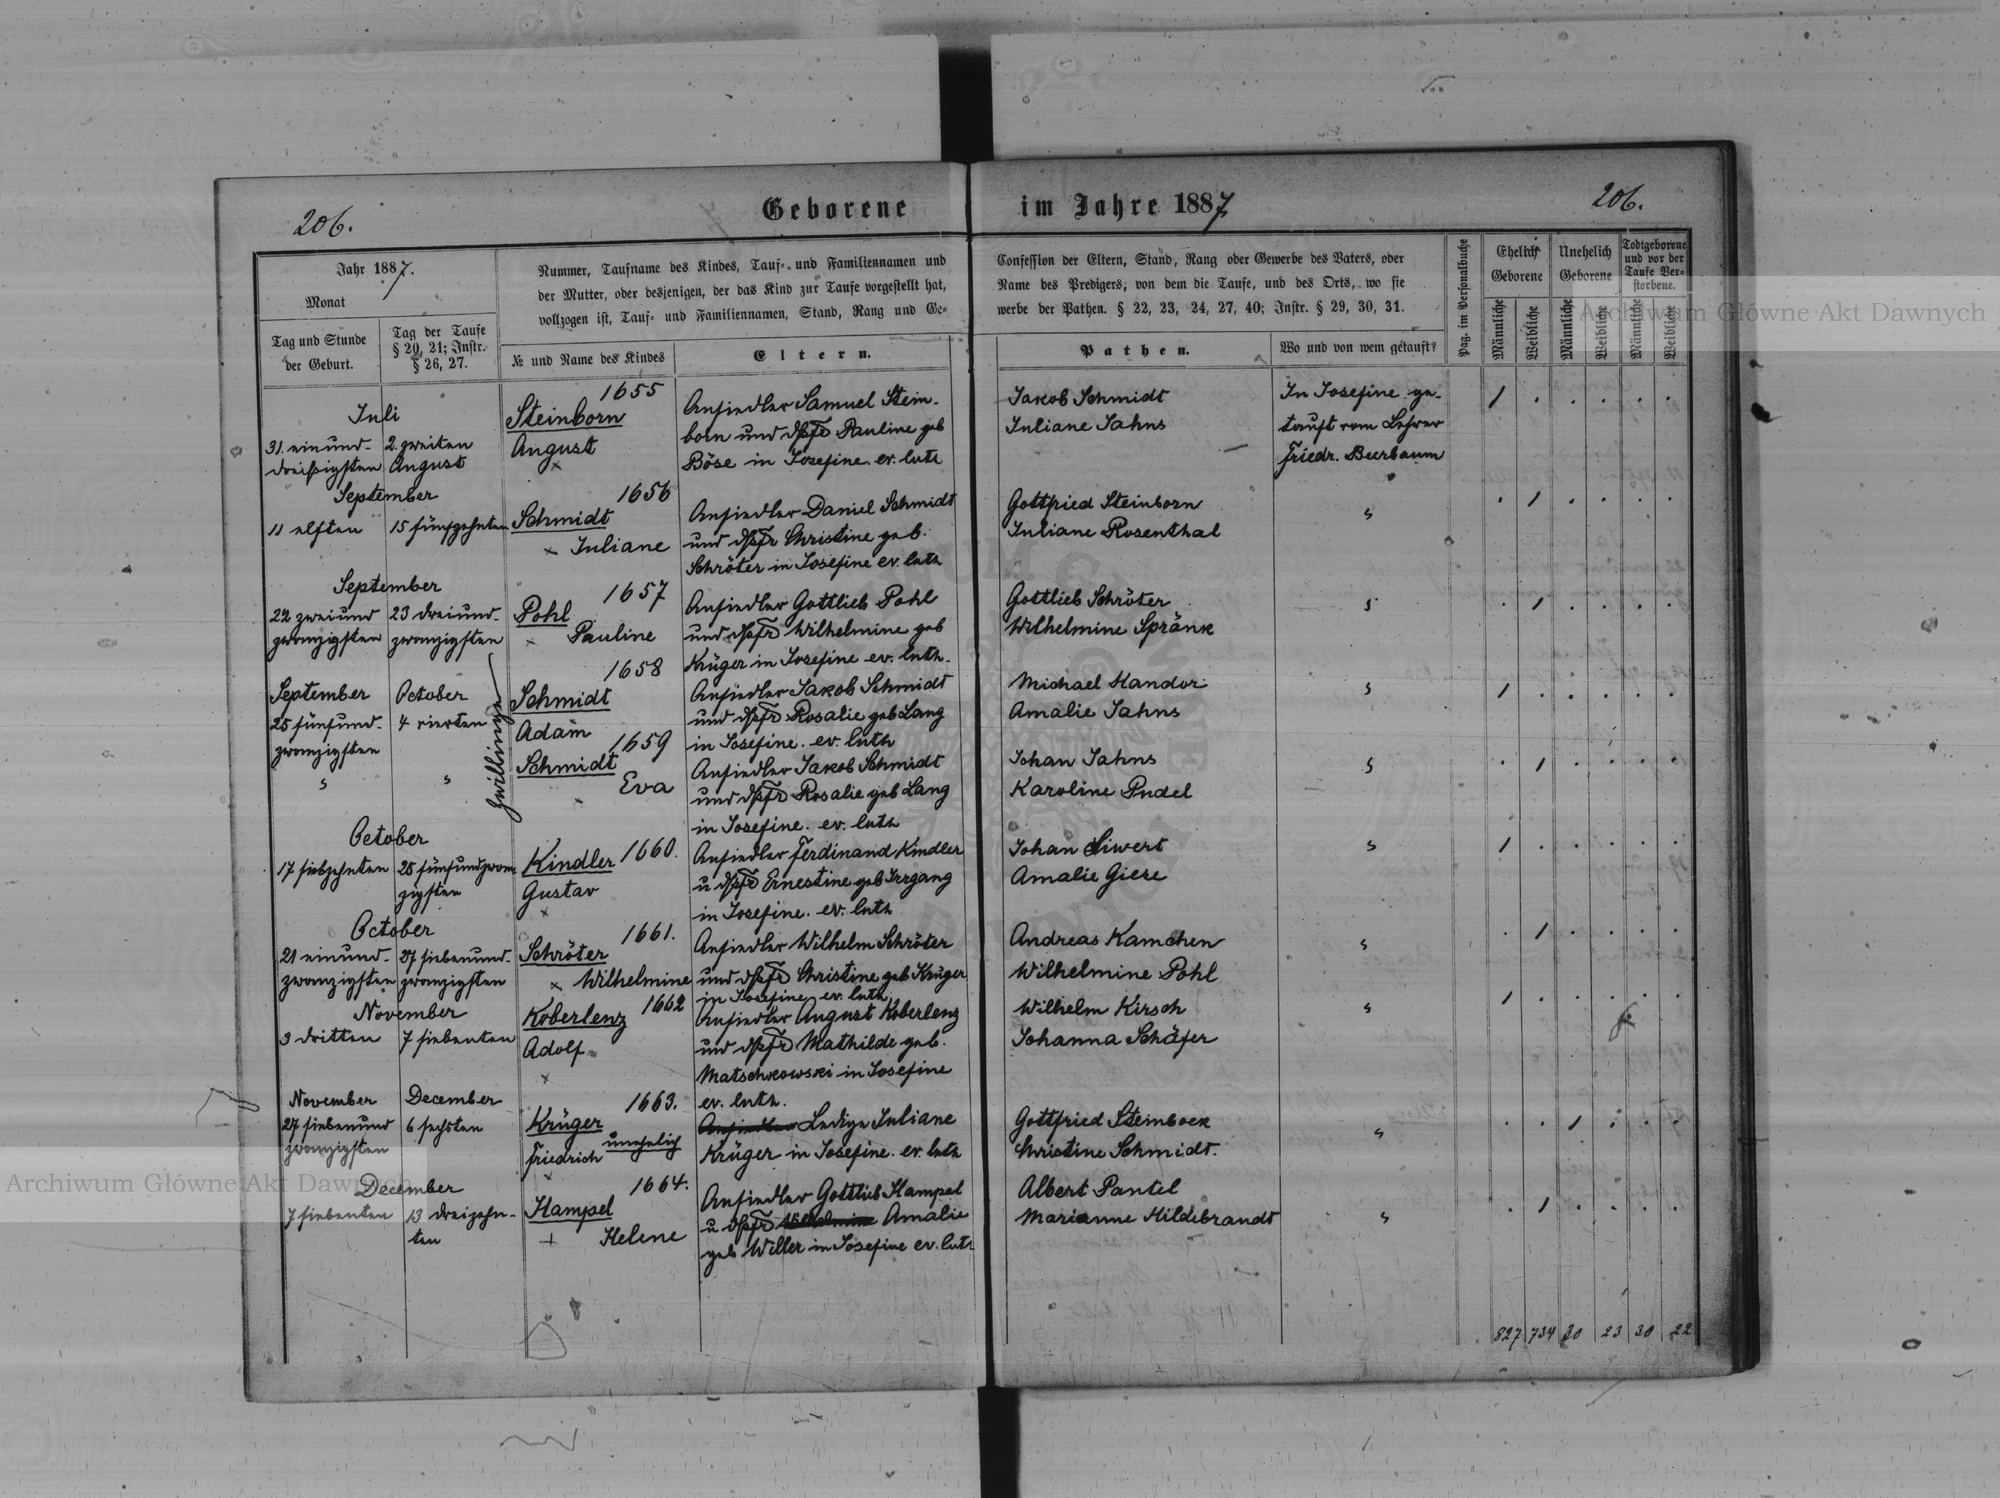 206.
Geborene
im Jahre 1887
206.
Jahr 1887.
Monat
Tag und Stunde
der Geburt.
Tag der Taufe
§ 20, 21; Instr.
§ 26, 27.
Nummer, Taufname des Kindes, Tauf- und Familiennamen und
der Mutter, oder desjenigen, der das Kind zur Taufe vorgestellt hat,
vollzogen ist, Tauf- und Familiennamen, Stand, Rang und Ge-
№ und Name des Kindes
Eltern.
Confession der Eltern, Stand, Rang oder Gewerbe des Vaters, oder
Name des Predigers, von dem die Taufe, und des Orts, wo sie
werbe der Pathen. § 22, 23, 24, 27, 40; Instr. § 29, 30, 31.
Pathen.
Wo und von wem getauft?
Pag. im Personalbuche
Ehelich
Geborene
Unehelich
Geborene
Todtgeborene
und vor der
Taufe Ver-
storbene.
Männliche
Weibliche
Männliche
Weibliche
Männliche
Weibliche
Juli
31. einund-
dreißigsten
2. zweiten
August
1655
Steinborn
August
Ansiedler Samuel Stein-
born und Pauline geb
Böse in Josefine. ev. luth
Jakob Schmidt
Juliane Jahns
In Josefine ge-
tauft vom Lehrer
Friedr. Beerbaum
September
11 elften
15 fünfzehnten
1656
Schmidt
Juliane
Ansiedler Daniel Schmidt
und Christine geb.
Schröter in Josefine ev. luth
Gottfried Steinborn
Juliane Rosenthal
September
22 zweiund
zwanzigsten
23 dreiund-
zwanzigsten
1657
Pohl
Pauline
Ansiedler Gottlieb Pohl
und Wilhelmine geb
Krüger in Josefine ev. luth.
Gottlieb Schröter
Wilhelmine Spränk
September
25 fünfund-
zwanzigsten
October
4 vierten
Zwillinge
1658
Schmidt
Adam
Ansiedler Jakob Schmidt
und Rosalie geb Lang
in Josefine. ev. luth
Michael Handor
Amalie Jahns
1659
Schmidt
Eva
Ansiedler Jakob Schmidt
und Rosalie geb Lang
in Josefine. ev. luth
Johan Jahns
Karoline Pudel
October
17 siebzehnten
25 fünfundzwan
zigsten
1660.
Kindler
Gustav
Ansiedler Ferdinand Kindler
u Ernestine geb Irrgang
in Josefine. ev. luth
Johan Siwert
Amalie Giese
October
21 einund-
zwanzigsten
27 siebenund-
zwanzigsten
1661.
Schröter
Wilhelmine
Ansiedler Wilhelm Schröter
und Christine geb Krüger
in Josefine ev. luth
Andreas Kamchen
Wilhelmine Pohl
November
3 dritten
7 siebenten
1662
Koberlenz
Adolf
Ansiedler August Koberlenz
und Mathilde geb.
Matschkowski in Josefine
ev. luth.
Wilhelm Kirsch
Johanna Schäfer
November
27 siebenund
zwanzigsten
December
6 sechsten
1663.
Krüger
Friedrich unehelich
Ledige Juliane
Krüger in Josefine. ev. luth
Gottfried Steinbock
Christine Schmidt.
December
7 siebenten
13 dreizehn-
ten
1664.
Hampel
Helene
Ansiedler Gottlieb Hampel
u Amalie
geb Willer in Josefine ev. luth
Albert Pantel
Marianne Hildebrandt
827 734 30 23 30 22
Archiwum Główne Akt Dawnych
Archiwum Główne Akt Dawnych